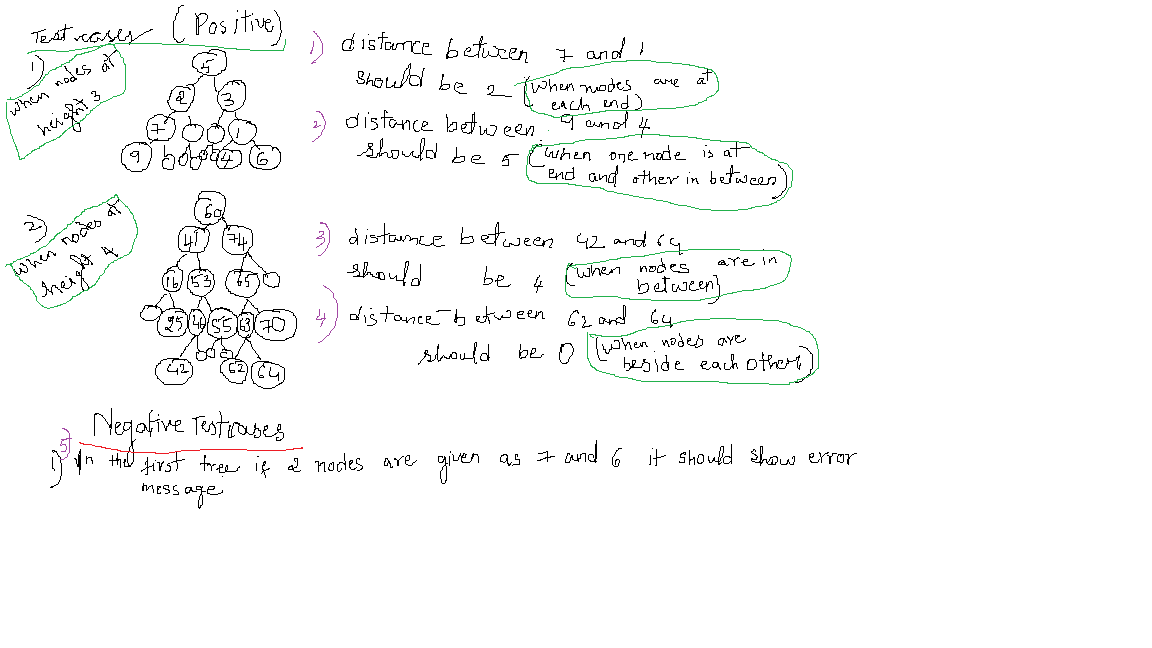 Testcases (Positive)
1)
when nodes at
height 3
5
2 3
7 1
9 4 6
1) distance between 7 and 1
should be 2 (when nodes are at
each end)
2) distance between 9 and 4
should be 5 (when one node is at
end and other in between)
2)
when nodes at
height 4
60
41 74
16 53 65
25 46 55 63 70
42 62 64
3) distance between 42 and 64
should be 4 (when nodes are in
between)
4) distance between 62 and 64
should be 0 (when nodes are
beside each other)
Negative Testcases
5)
1) In the first tree if 2 nodes are given as 7 and 6 it should show error
message